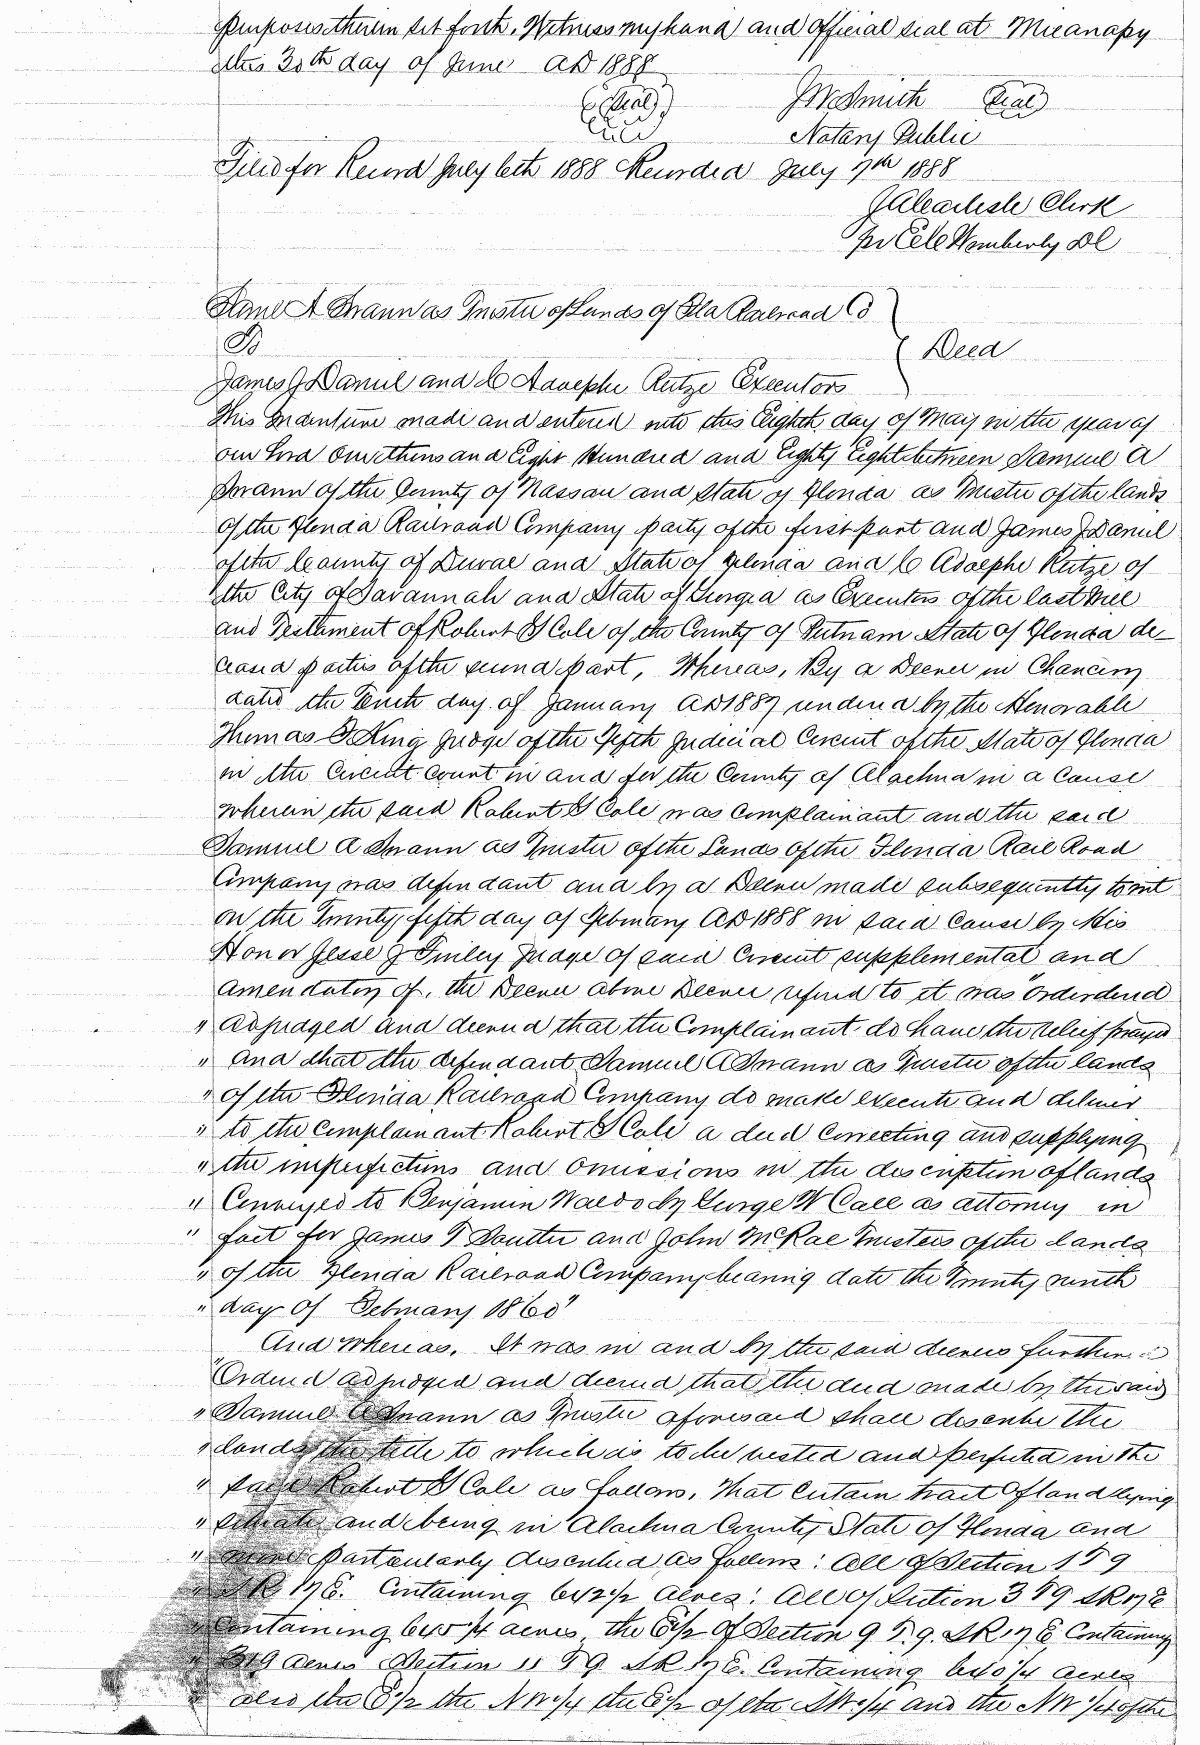 purposes therein set forth. Witness my hand and official seal at Micanopy
this 30th day of June AD 1888
(Seal) JW Smith (Seal)
Notary Public
Filed for Record July 6th 1888 Recorded July 7th 1888
J A Carlisle Clerk
pr Wimberly DC
Saml A Swann as Trustee of Lands of Fla Railroad Co
To
Deed
James J Daniel and C Adolphe Rutze Executors
This Indenture made and entered into this Eighth day of May in the year of
our Lord One thousand Eight Hundred and Eighty Eight between Samuel A
Swann of the County of Nassau and State of Florida as Trustee of the lands
of the Florida Railroad Company party of the first part and James J Daniel
of the County of Duval and State of Florida and C Adolphe Rutze of
the City of Savannah and State of Georgia as Executors of the last Will
and Testament of Robert G Cole of the County of Putnam State of Florida de-
ceased parties of the second part, Whereas, By a Decree in Chancery
dated the Tenth day of January AD 1887 rendered by the Honorable
Thomas F King Judge of the Fifth Judicial Circuit of the State of Florida
in the Circuit Court in and for the County of Alachua in a Cause
wherein the said Robert G Cole was Complainant and the said
Samuel A Swann as Trustee of the Lands of the Florida Rail Road
Company was defendant and by a Decree made subsequently towit
on the Twenty fifth day of February AD 1888 in said Cause by His
Honor Jesse J Finley Judge of said Circuit supplemental and
amendatory of, the Decree above Decree referred to it was "orderdered
" adjudged and decreed that the Complainant do have the relief prayed
" and that the defendant Samuel A Swann as Trustee of the lands
" of the Florida Railroad Company do make execute and deliver
" to the Complainant Robert G Cole a deed Correcting and supplying
" the imperfections and omissions in the description of lands
" Conveyed to Benjamin Waldo by George W Call as attorney in
" fact for James T Soutter and John McRae Trustees of the lands
" of the Florida Railroad Company bearing date the Twenty ninth
" day of February 1860"
And whereas. It was in and by the said decrees further
"Ordered adjudged and decreed that the deed made by the said
" Samuel A Swann as Trustee aforesaid shall describe the
" lands the title to which is to be vested and perfected in the
" said Robert G Cole as follows. That certain tract of land lying
" situate and being in Alachua County State of Florida and
" more particularly described as follows: All of Section 1 T 9
" S R 17 E. Containing 642 1/2 acres: All of Section 3 T 9 S R 17 E
" Containing 645 1/4 acres, the E 1/2 of Section 9 T. 9. S R 17 E Containing
" 319 acres Section 11 T 9 S R 17 E. Containing 640 1/4 acres
" also the E 1/2 the N W 1/4 the E 1/2 of the S W 1/4 and the N W 1/4 of the